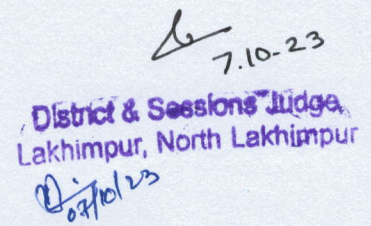 7.10-23
District & Sessions Judge,
Lakhimpur, North Lakhimpur
07/10/23